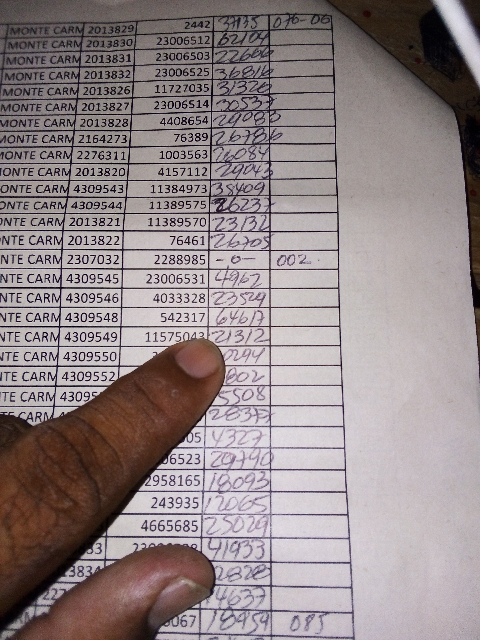 MONTE CARM 2013829 2442 37135 076-06
MONTE CARM 2013830 23006512 62104
MONTE CARM 2013831 23006503 22666
MONTE CARM 2013832 23006525 36816
MONTE CARM 2013826 11727035 31326
MONTE CARM 2013827 23006514 30537
MONTE CARM 2013828 4408654 29083
MONTE CARM 2164273 76389 26786
MONTE CARM 2276311 1003563 26084
MONTE CARM 2013820 4157112 29043
MONTE CARM 4309543 11384973 38409
MONTE CARM 4309544 11389575 26237
ONTE CARM 2013821 11389570 23132
ONTE CARM 2013822 76461 26705
ONTE CARM 2307032 2288985 -0- 002.
ONTE CARM 4309545 23006531 4962
NTE CARM 4309546 4033328 23529
NTE CARM 4309548 542317 64617
NTE CARM 4309549 11575043 21312
NTE CARM 4309550 0294
NTE CARM 4309552 802
TE CARM 43095 5508
CARM 28377
05 4327
06523 29790
2958165 18093
243935 12065
4665685 25029
33 41933
3834 2828
4637
0067 18959 085